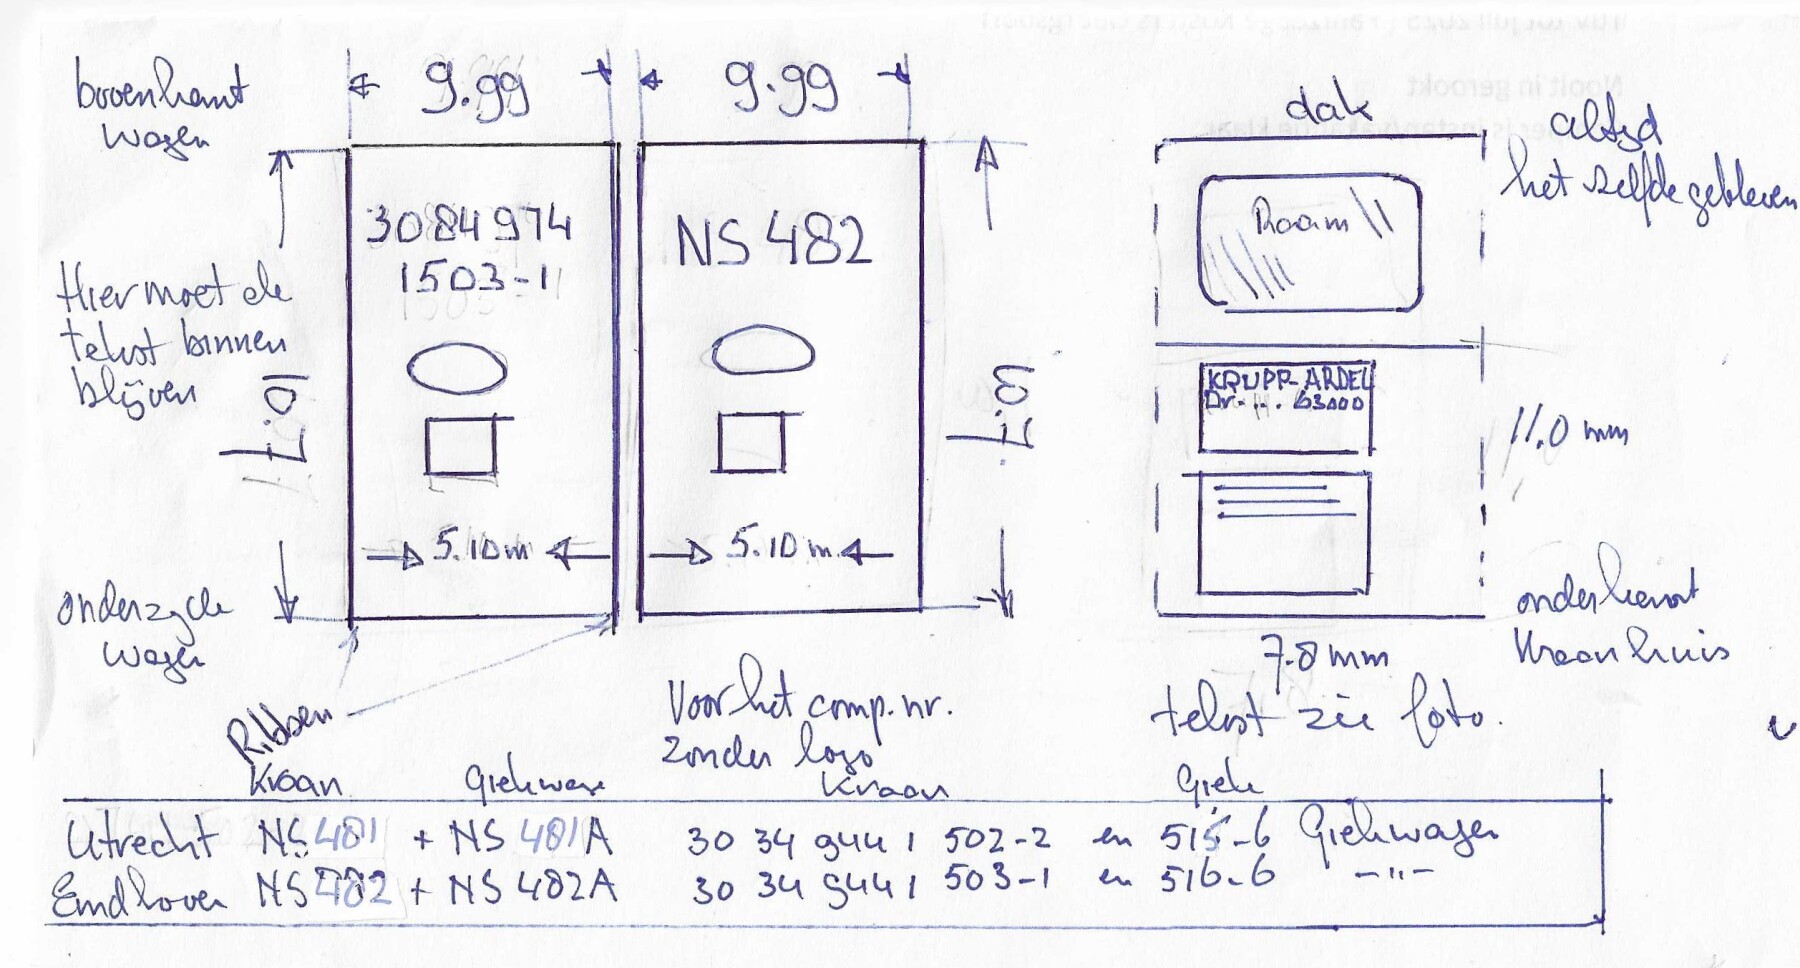 bovenkant
wagen
9.99
9.99
dak
altyd
het zelfde gebleven
3084 974
1503-1
NS 482
Raam
Hier moet de
tekst binnen
blijven
KRUPP-ARDEL
Dr- ... 63000
11.0 mm
5.10 m
5.10 m
onderzyde
wagen
onderkant
Kraanhuis
7.8 mm
Ribben
Voor het comp. nr.
zonder logo
tekst zie foto.
Kraan Giekwage Kraan Giek
Utrecht NS 481 + NS 481A 30 34 944 1 502-2 en 515-6 Giekwagen
Eindhoven NS 482 + NS 482A 30 34 944 1 503-1 en 516-6 -"-